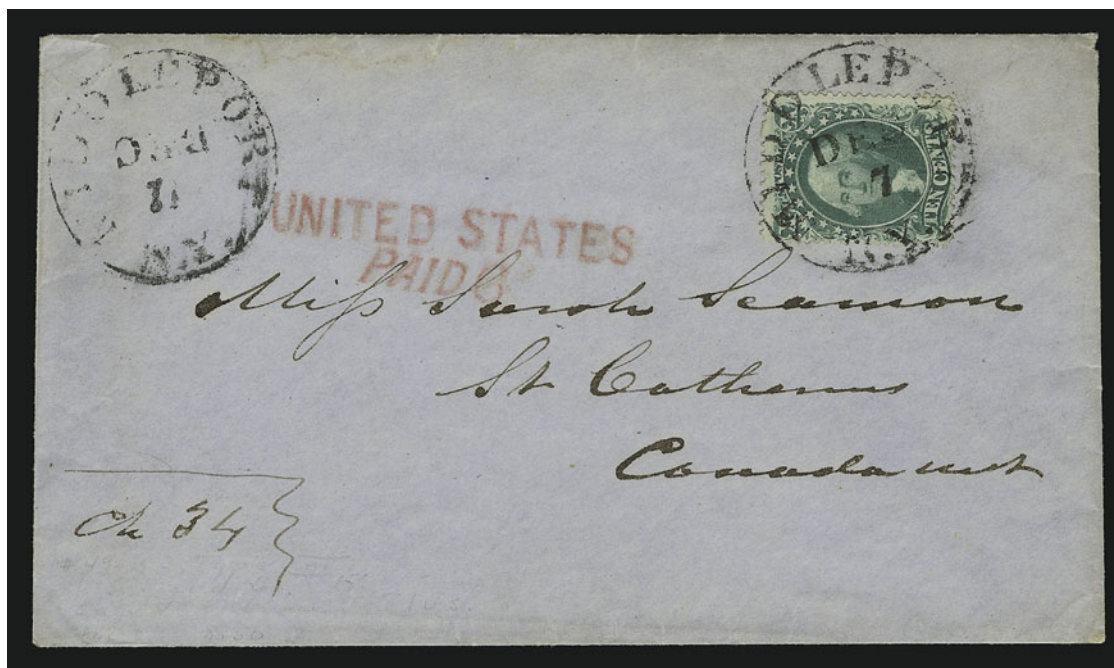 MIDDLEPORT
DEC
7
N.Y.
MIDDLEPORT
DEC
7
N.Y.
UNITED STATES
PAID 6
Miss Sarah Seamon
St Catherines
Canada West
ck 34